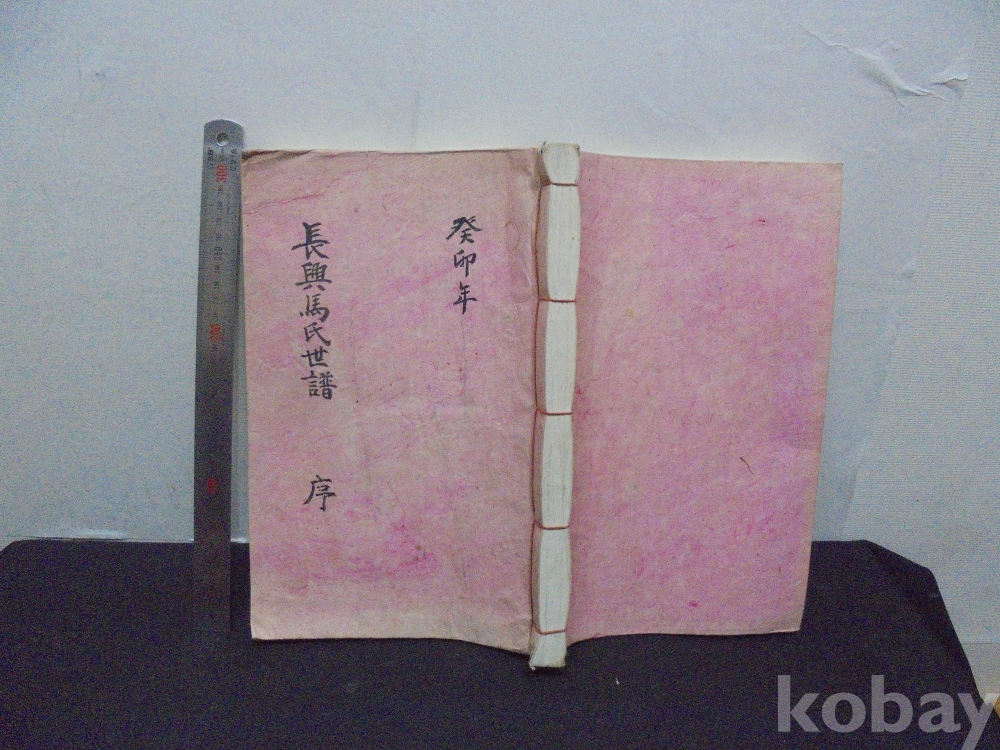 癸卯年
長興馬氏世譜 序
kobay